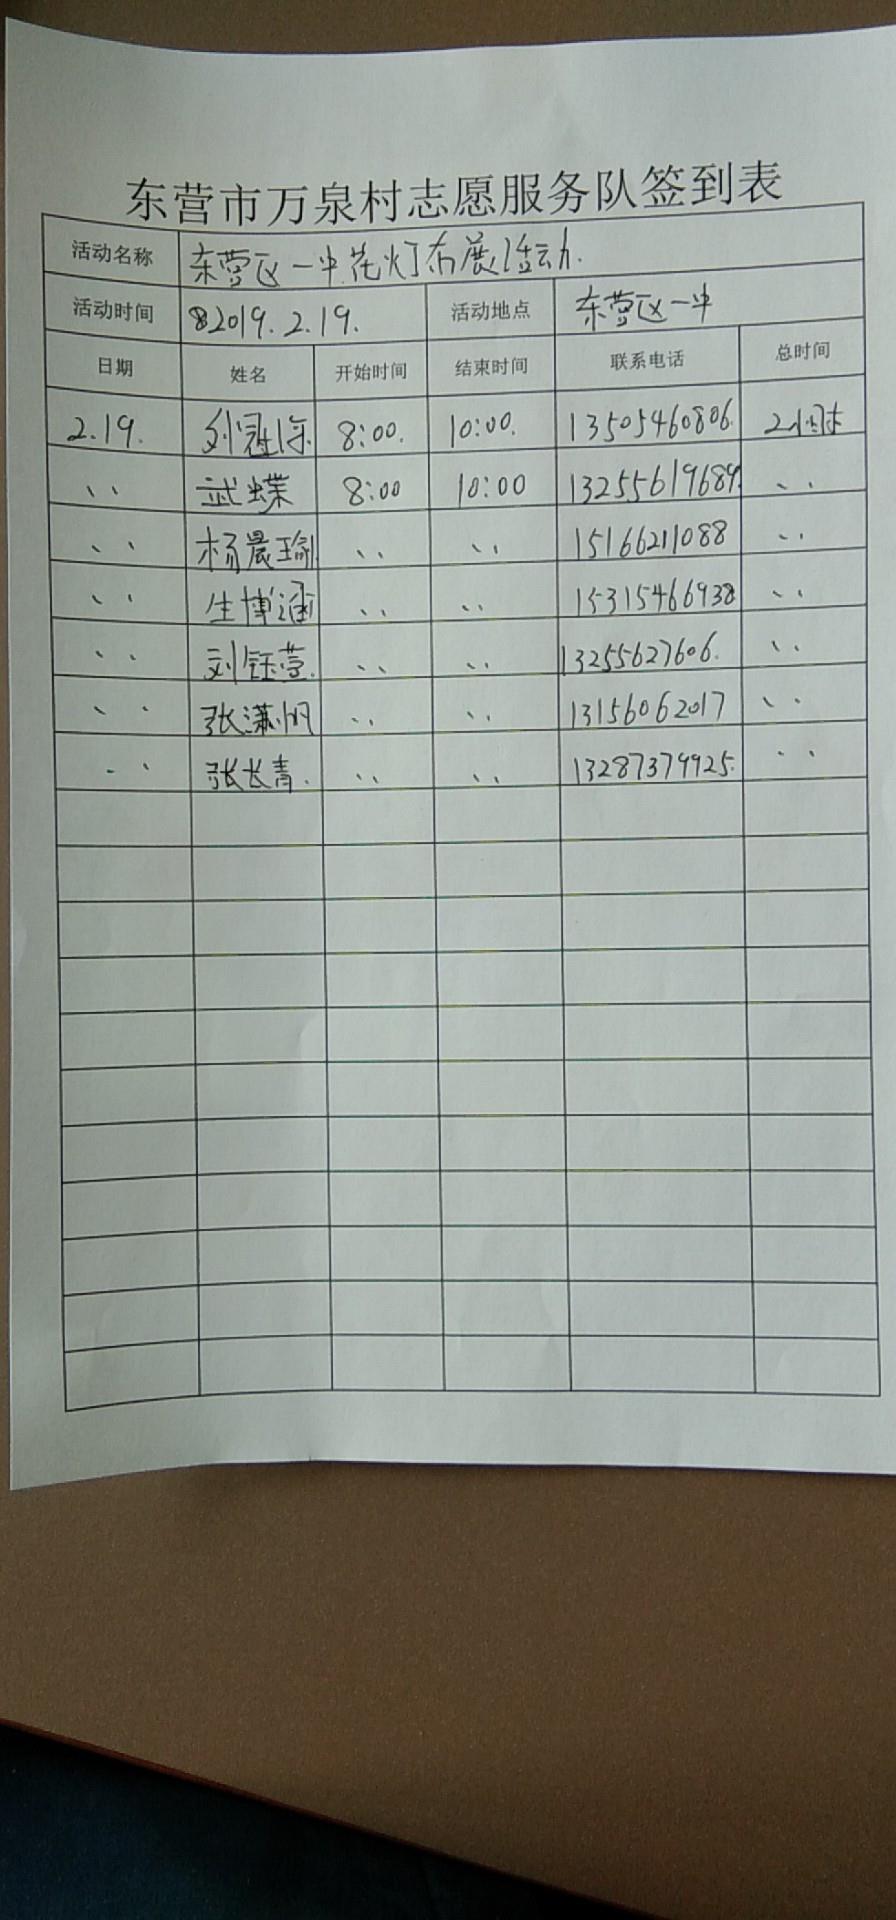 东营市万泉村志愿服务队签到表
活动名称 东营区一中花灯布展活动.
活动时间 2019.2.19. 活动地点 东营区一中
日期 姓名 开始时间 结束时间 联系电话 总时间
2.19. 刘冠乐 8:00. 10:00. 13505460806. 2小时
、、 武蝶 8:00 10:00 13255619689. 、、
、、 杨晨瑜 、、 、、 15166211088 、、
、、 生博涵 、、 、、 15315466938 、、
、、 刘钰萱. 、、 、、 13255627606. 、、
、、 张潇帆 、、 、、 13156062017 、、
、、 张长青. 、、 、、 13287379925. 、、